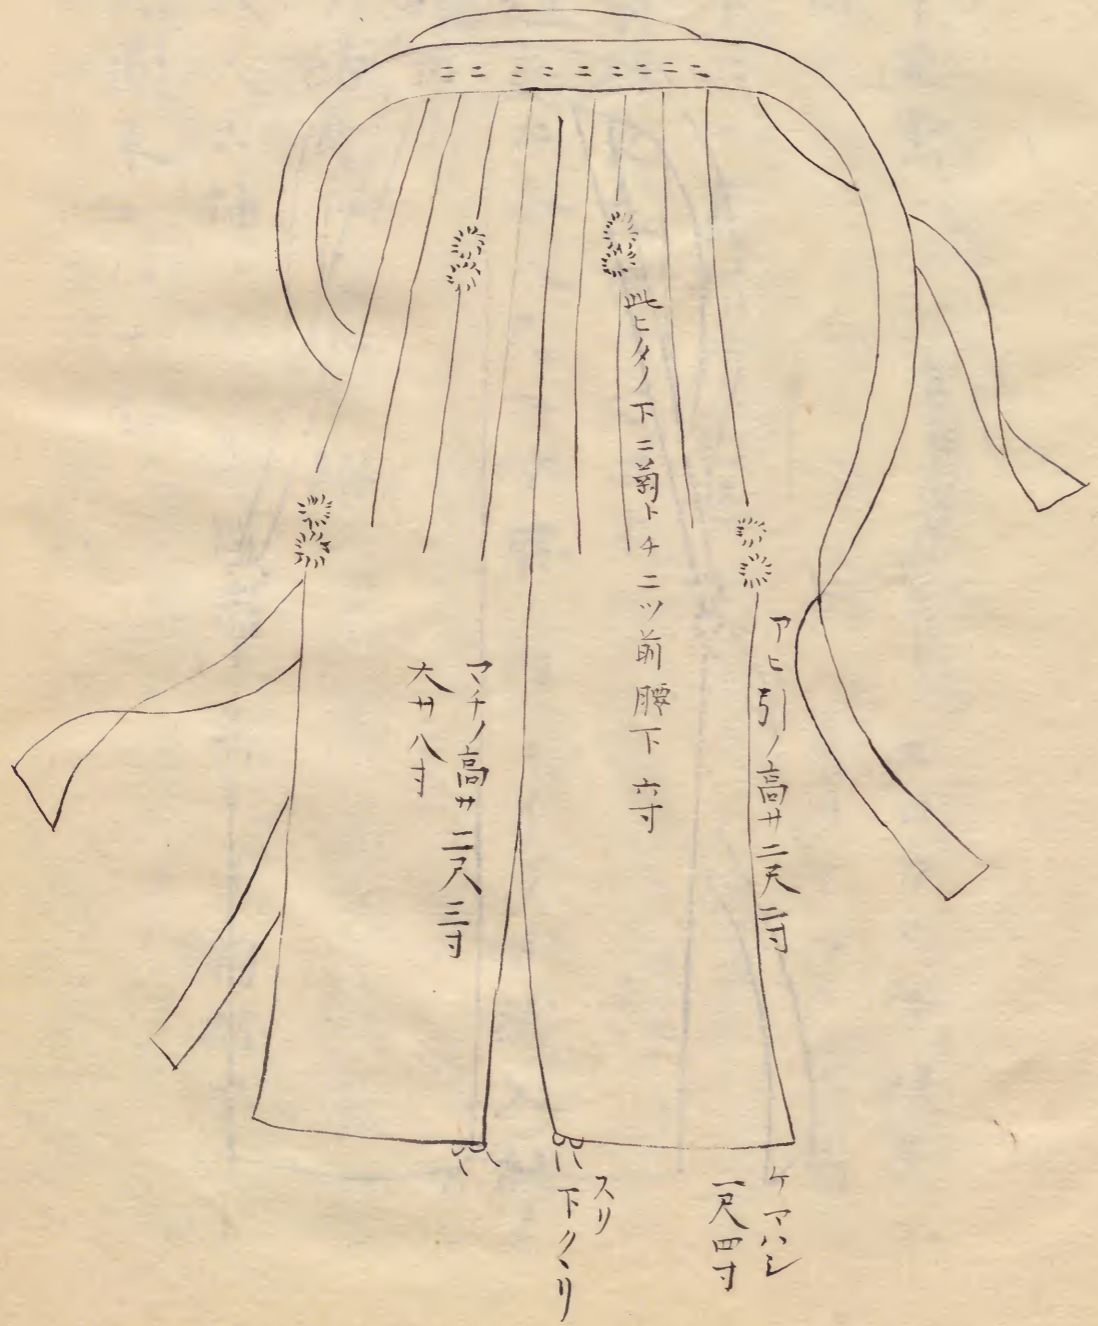 アヒ引ノ高サ二尺二寸
此ヒタノ下ニ菊トチ二ツ前腰下六寸
マチノ高サ二尺三寸
大サ八寸
ケマハシ
一尺四寸
スソ
下クヽリ